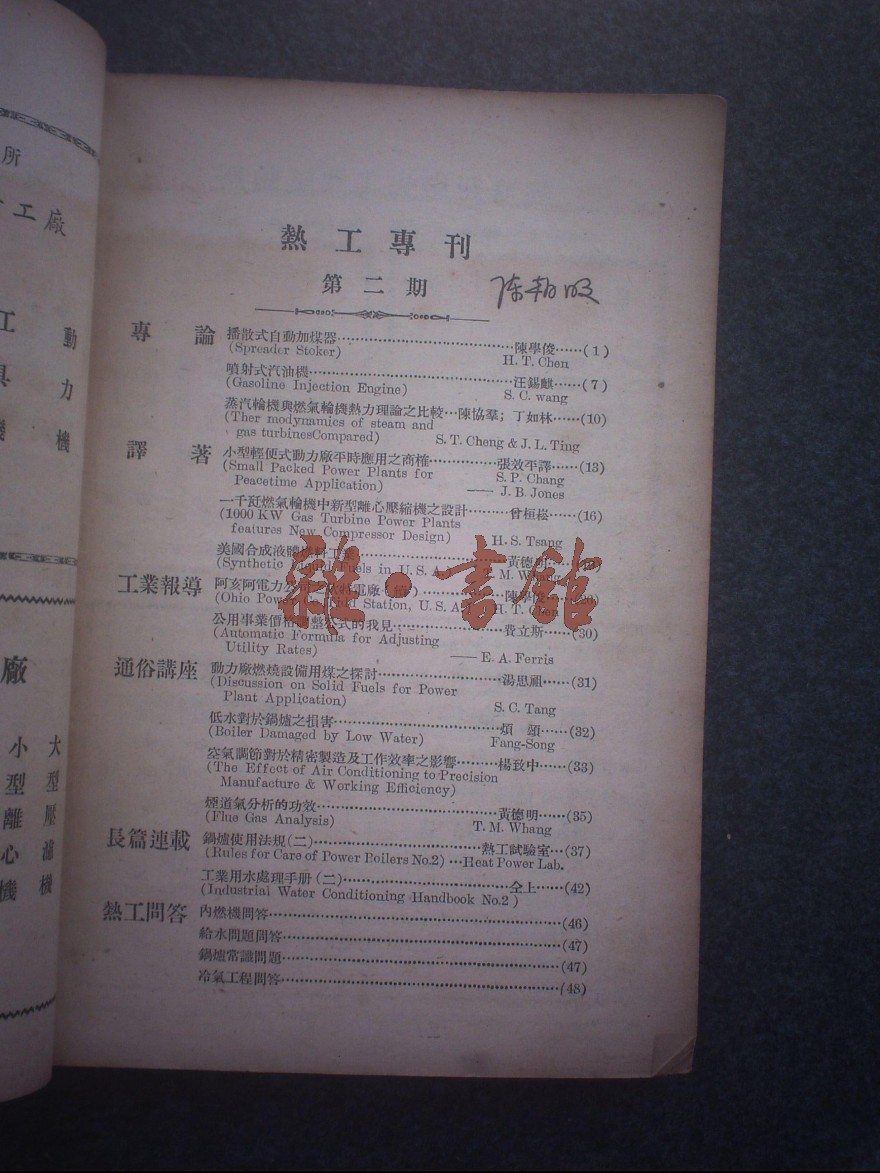 熱工專刊
第二期
專論 播散式自動加煤器……陳學俊……(1)
(Spreader Stoker) H. T. Chen
噴射式汽油機……汪錫麒……(7)
(Gasoline Injection Engine) S. C. wang
蒸汽輪機與燃氣輪機熱力理論之比較…陳協羣;丁如林……(10)
(Ther modymamics of steam and
gas turbinesCompared) S. T. Cheng & J. L. Ting
譯著 小型輕便式動力廠平時應用之商榷……張效平譯……(13)
(Small Packed Power Plants for S. P. Chang
Peacetime Application) —— J. B. Jones
一千瓩燃氣輪機中新型離心壓縮機之設計……曾桓崧……(16)
(1000 KW Gas Turbine Power Plants
features New Compressor Design) H. S. Tsang
美國合成液體燃料工業……黃德明
(Synthetic Liquid Fuels in U. S. A. T. M. Whang
工業報導 阿亥阿電力公司
(Ohio Power Co. Station, U. S. A. H. T. Chen
公用事業價格調整公式的我見……費立斯……(30)
(Automatic Formula for Adjusting
Utility Rates) —— E. A. Ferris
通俗講座 動力廠燃燒設備用煤之探討……湯思祖……(31)
(Discussion on Solid Fuels for Power
Plant Application) S. C. Tang
低水對於鍋爐之損害……頌……(32)
(Boiler Damaged by Low Water) Fang-Song
空氣調節對於精密製造及工作效率之影響……楊致中……(33)
(The Effect of Air Conditioning to Precision
Manufacture & Working Efficiency)
煙道氣分析的功效……黃德明……(35)
(Flue Gas Analysis) T. M. Whang
長篇連載 鍋爐使用法規(二)……熱工試驗室…(37)
(Rules for Care of Power Boilers No.2) …Heat Power Lab.
工業用水處理手册(二)……仝上……(42)
(Industrial Water Conditioning Handbook No.2)
熱工問答 內燃機問答……(46)
給水問題問答……(47)
鍋爐常識問題……(47)
冷氣工程問答……(48)
雜·書館
所
工廠
動力機
廠
大型壓濾機
小型離心機